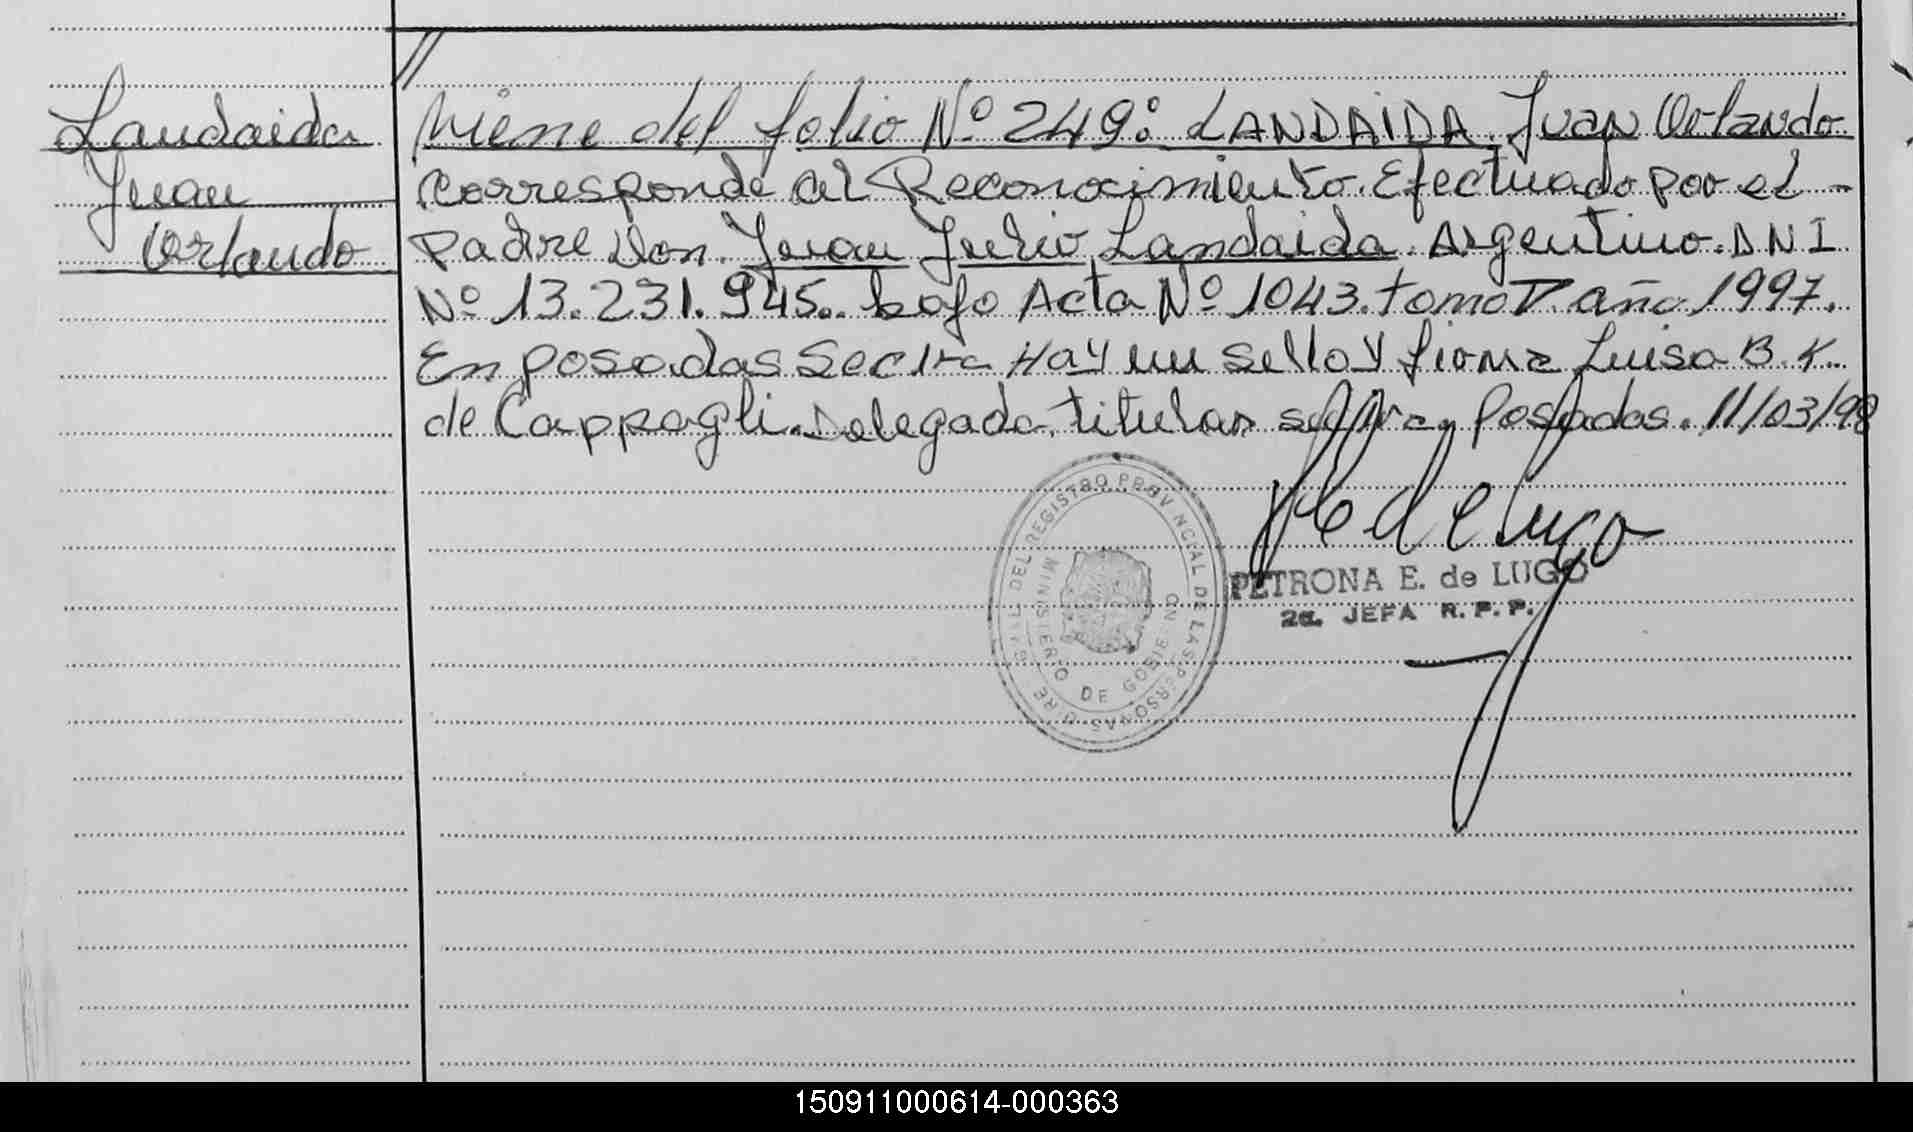 Landaida
Juan
Orlando
// Viene del folio Nº 249: LANDAIDA. Juan Orlando
Corresponde al Reconocimiento. Efectuado por el -
Padre Don. Juan Julio Landaida. Argentino. DNI
Nº 13.231.945.. bajo Acta Nº 1043. tomo V año 1997.
En posadas Sec 1ra Hay un sello y firma Luisa B. K.
de Cappagli. Delegada. titular sec 1ra. Posadas. 11/03/98
PETRONA E. de LUGO
2a. JEFA R. P. P.
DEL REGISTRO PROVINCIAL DE LAS PERSONAS
MINISTERIO DE GOBIERNO
150911000614-000363